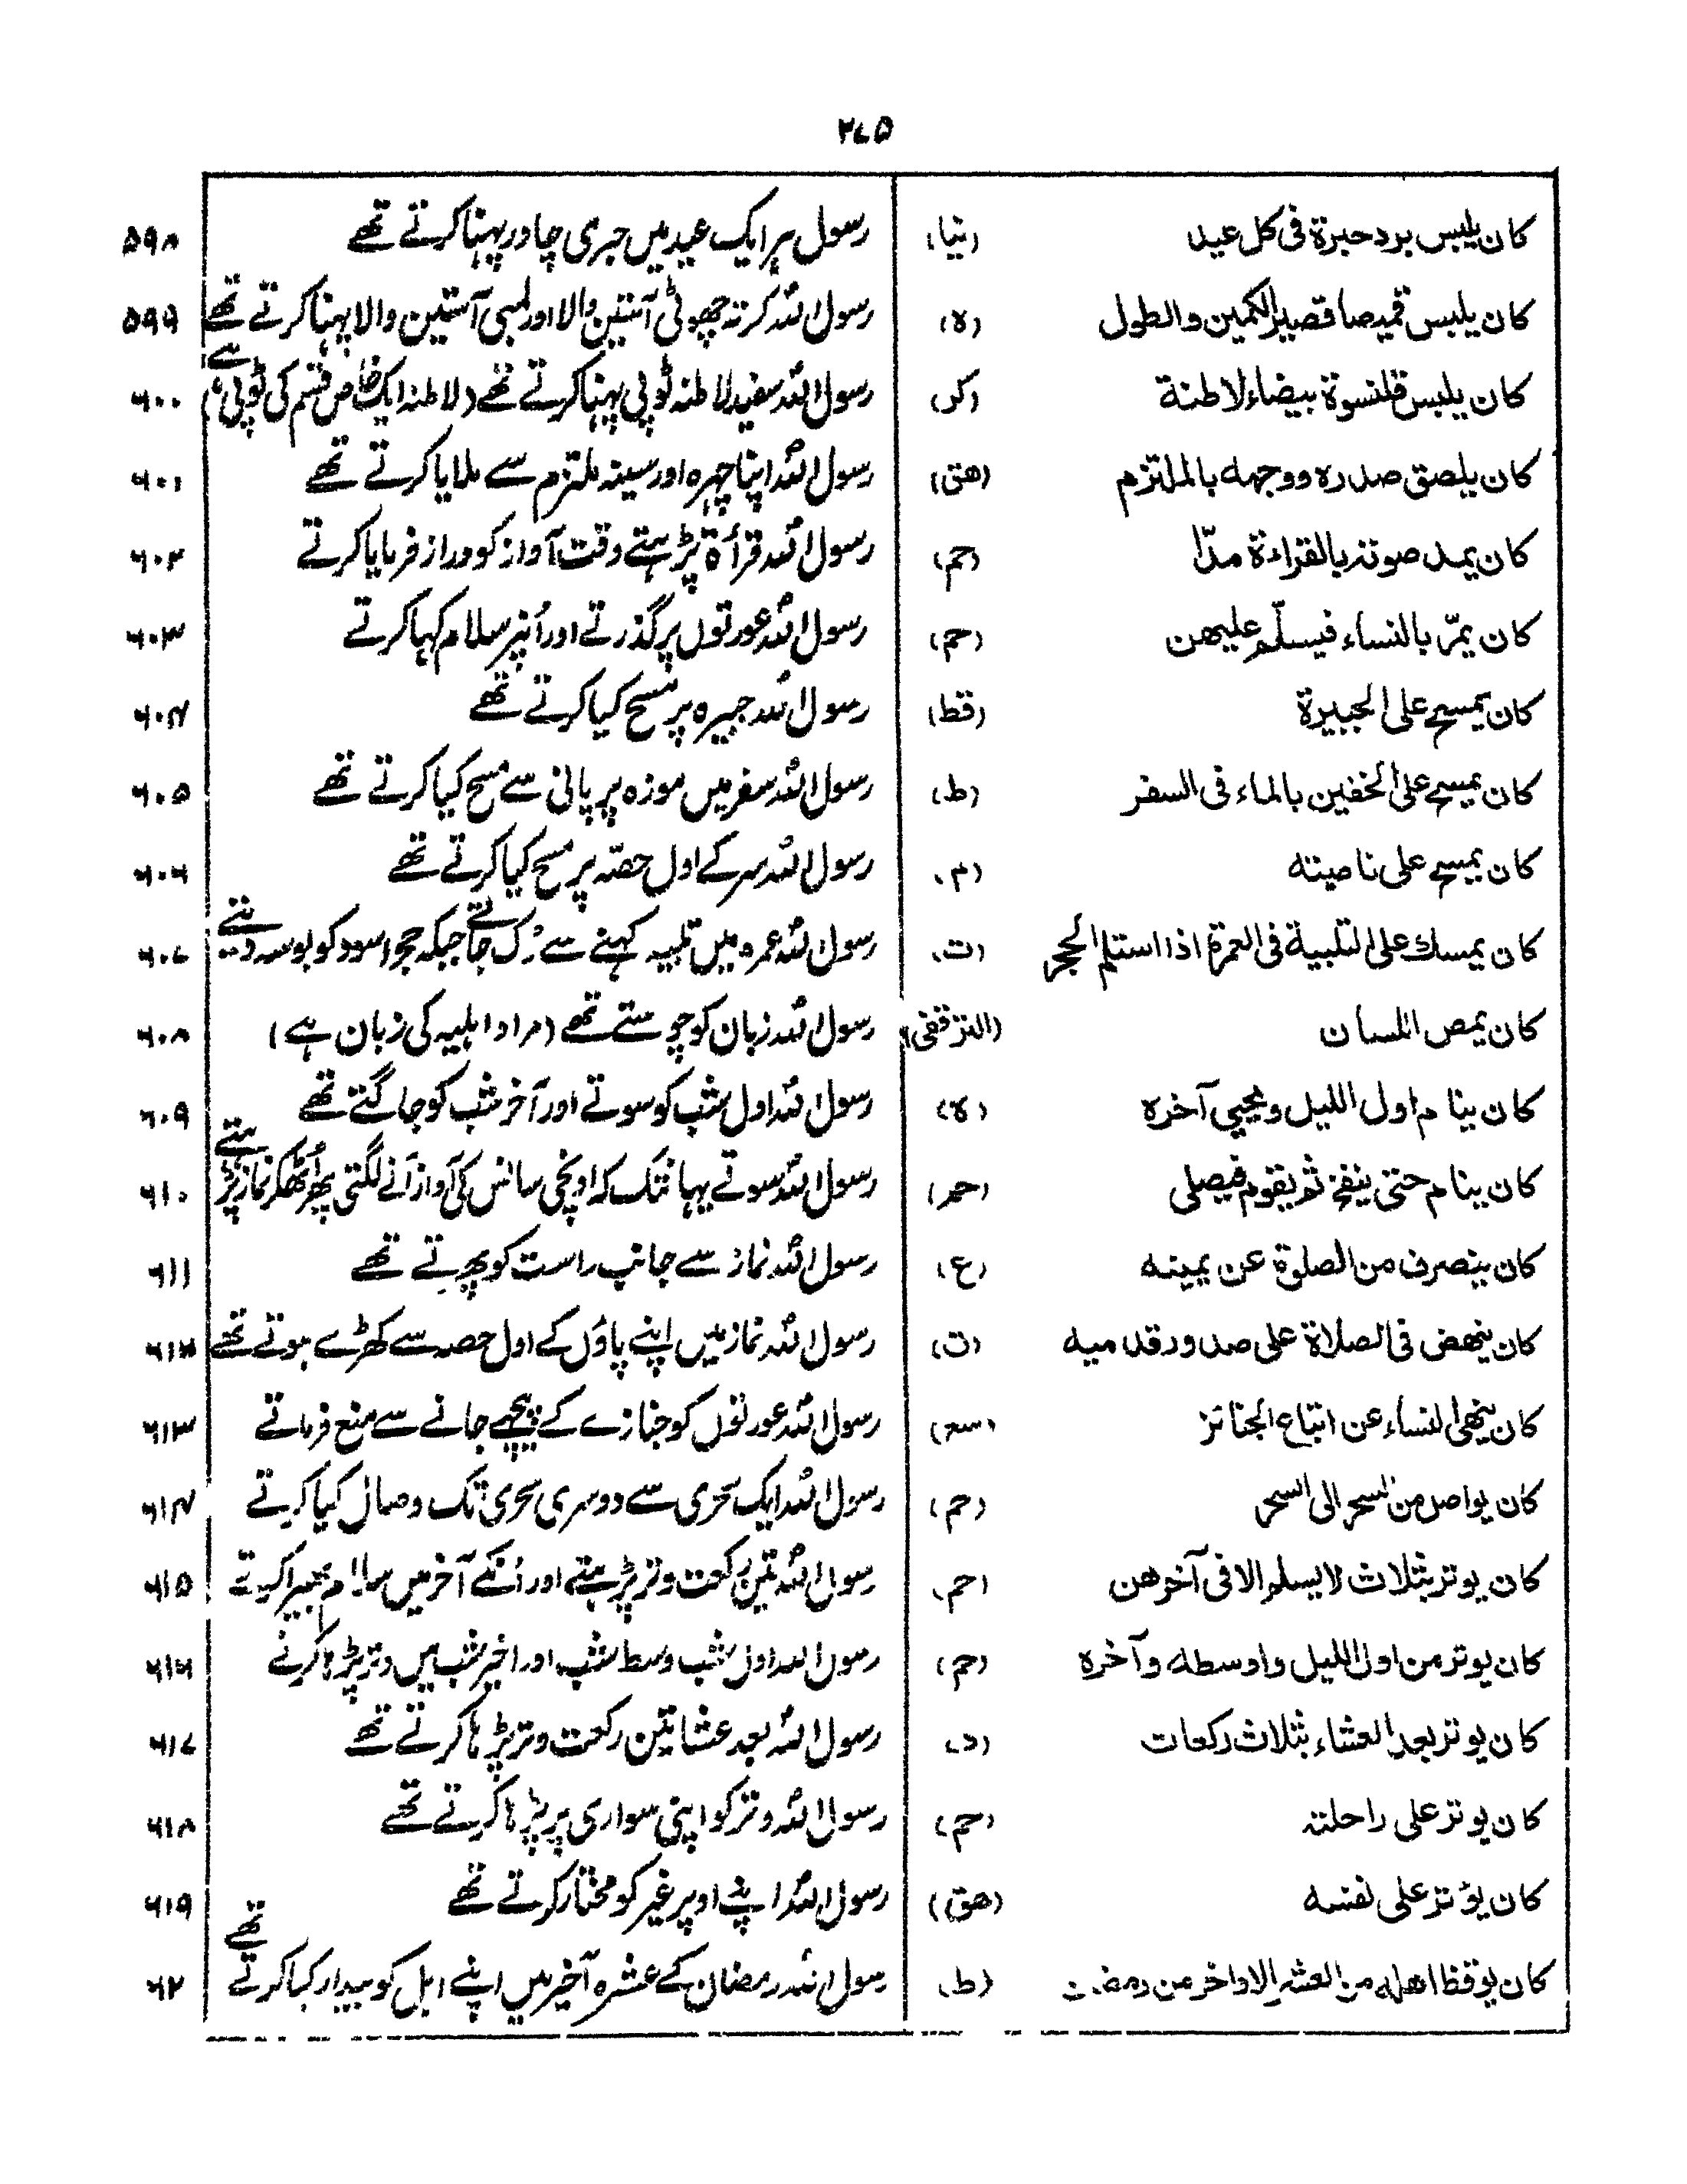 ۲۷۵
کان یلبس برد حبرة فی کل عید (نیا) رسول ہر ایک عید میں حبری چادر پہنا کرتے تھے ۵۹۸
کان یلبس قمیصا قصیر الکمین والطول (ہ) رسول اللہ کرتہ چھوٹی آستین والا اور لمبی آستین والا پہنا کرتے تھے ۵۹۹
کان یلبس قلنسوة بیضاء لاطنة (کر) رسول اللہ سفید لاطنہ ٹوپی پہنا کرتے تھے (لاطنہ ایک خاص قسم کی ٹوپی ہے) ۶۰۰
کان یلصق صدرہ ووجہہ بالملتزم (ھق) رسول اللہ اپنا چہرہ اور سینہ ملتزم سے ملایا کرتے تھے ۶۰۱
کان یمد صوتہ بالقراءة مدّا (حم) رسول اللہ قرأة پڑہتے وقت آواز کو دراز فرمایا کرتے ۶۰۲
کان یمرّ بالنساء فیسلّم علیھن (حم) رسول اللہ عورتوں پر گذرتے اور اُنپر سلام کہا کرتے ۶۰۳
کان یمسح علی الجبیرة (قط) رسول اللہ جبیرہ پر مسح کیا کرتے تھے ۶۰۴
کان یمسح علی الخفین بالماء فی السفر (ط) رسول اللہ سفر میں موزہ پر پانی سے مسح کیا کرتے تھے ۶۰۵
کان یمسح علی ناصیتہ (م) رسول اللہ سر کے اول حصّہ پر مسح کیا کرتے تھے ۶۰۶
کان یمسک علی التلبیة فی العمرة اذا استلم الحجر (ت) رسول اللہ عمرہ میں تلبیہ کہنے سے رُک جاتے جبکہ حجر اسود کو بوسہ دیتے ۶۰۷
کان یمص اللسان (الترقفی) رسول اللہ زبان کو چوستے تھے (مراد اہلبیہ کی زبان ہے) ۶۰۸
کان ینام اول اللیل ویحیی آخرہ (ہ) رسول اللہ اول شب کو سوتے اور آخر شب کو جاگتے تھے ۶۰۹
کان ینام حتی ینفخ ثم یقوم فیصلی (حم) رسول اللہ سوتے یہانتک کہ اونچی سانس کی آواز آنے لگتی پھر اُٹھکر نماز پڑہتے ۶۱۰
کان ینصرف من الصلوة عن یمینہ (ع) رسول اللہ نماز سے جانب راست کو پھرتے تھے ۶۱۱
کان ینھض فی الصلاة علی صدور قدمیہ (ت) رسول اللہ نماز میں اپنے پاؤں کے اول حصہ سے کھڑے ہوتے تھے ۶۱۲
کان ینھی النساء عن اتباع الجنائز (سع) رسول اللہ عورتوں کو جنازے کے پیچھے جانے سے منع فرماتے ۶۱۳
کان یواصل من السحر الی السحر (حم) رسول اللہ ایک سحری سے دوسری سحری تک وصال کیا کرتے ۶۱۴
کان یوتر بثلاث لا یسلم الا فی آخرھن (حم) رسول اللہ تین رکعت وتر پڑہتے اور اُنکے آخر میں سلام پھیرا کرتے ۶۱۵
کان یوتر من اول اللیل واوسطہ وآخرہ (حم) رسول اللہ اول شب وسط شب اور اخیر شب میں وتر پڑہا کرتے ۶۱۶
کان یوتر بعد العشاء بثلاث رکعات (د) رسول اللہ بعد عشا تین رکعت وتر پڑہا کرتے تھے ۶۱۷
کان یوتر علی راحلتہ (حم) رسول اللہ وتر کو اپنی سواری پر پڑہا کرتے تھے ۶۱۸
کان یؤثر علی نفسہ (ھق) رسول اللہ اپنے اوپر غیر کو مختار کرتے تھے ۶۱۹
کان یوقظ اھلہ من العشر الاواخر من رمضان (ط) رسول اللہ رمضان کے عشرہ آخیر میں اپنے اہل کو بیدار کیا کرتے تھے ۶۲